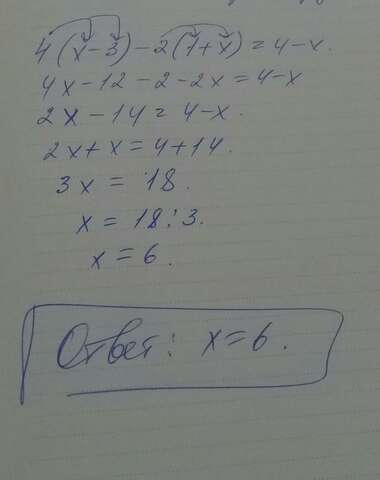 4(x-3)-2(1+x)=4-x.
4x-12-2-2x=4-x
2x-14=4-x.
2x+x=4+14.
3x=18.
x=18:3.
x=6.
Ответ: x=6.